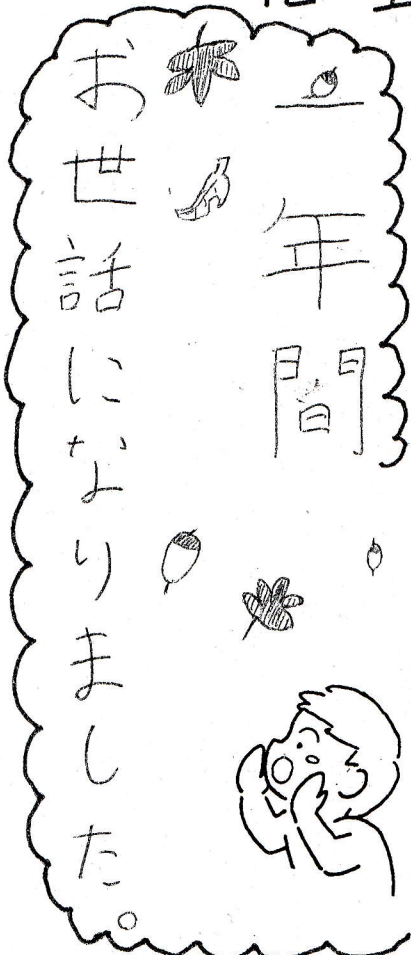 一年間
お世話になりました。